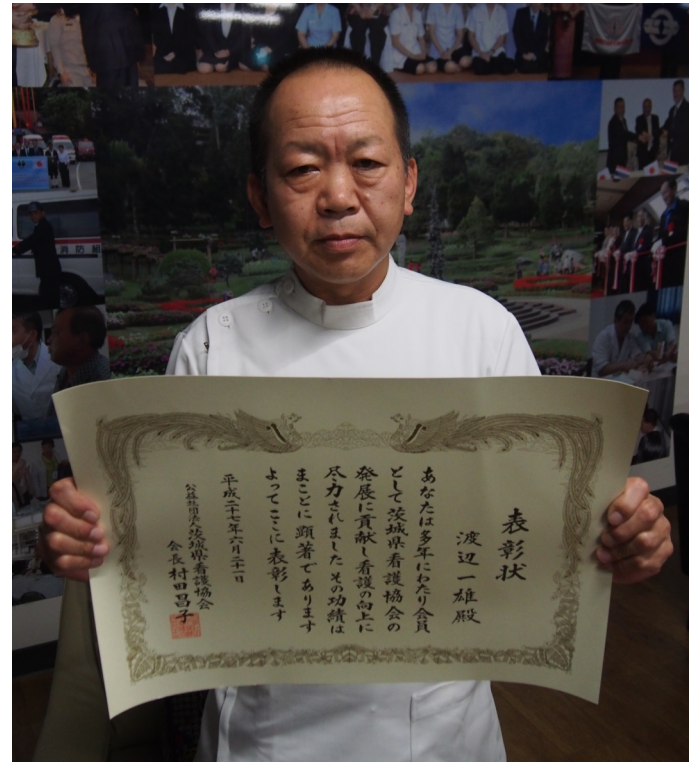 表彰状
渡辺一雄殿
あなたは多年にわたり会員
として茨城県看護協会の
発展に貢献し看護の向上に
尽力されましたその功績は
まことに顕著であります
よってここに表彰します
平成二十七年六月二十一日
公益社団法人茨城県看護協会
会長村田昌子
消防組